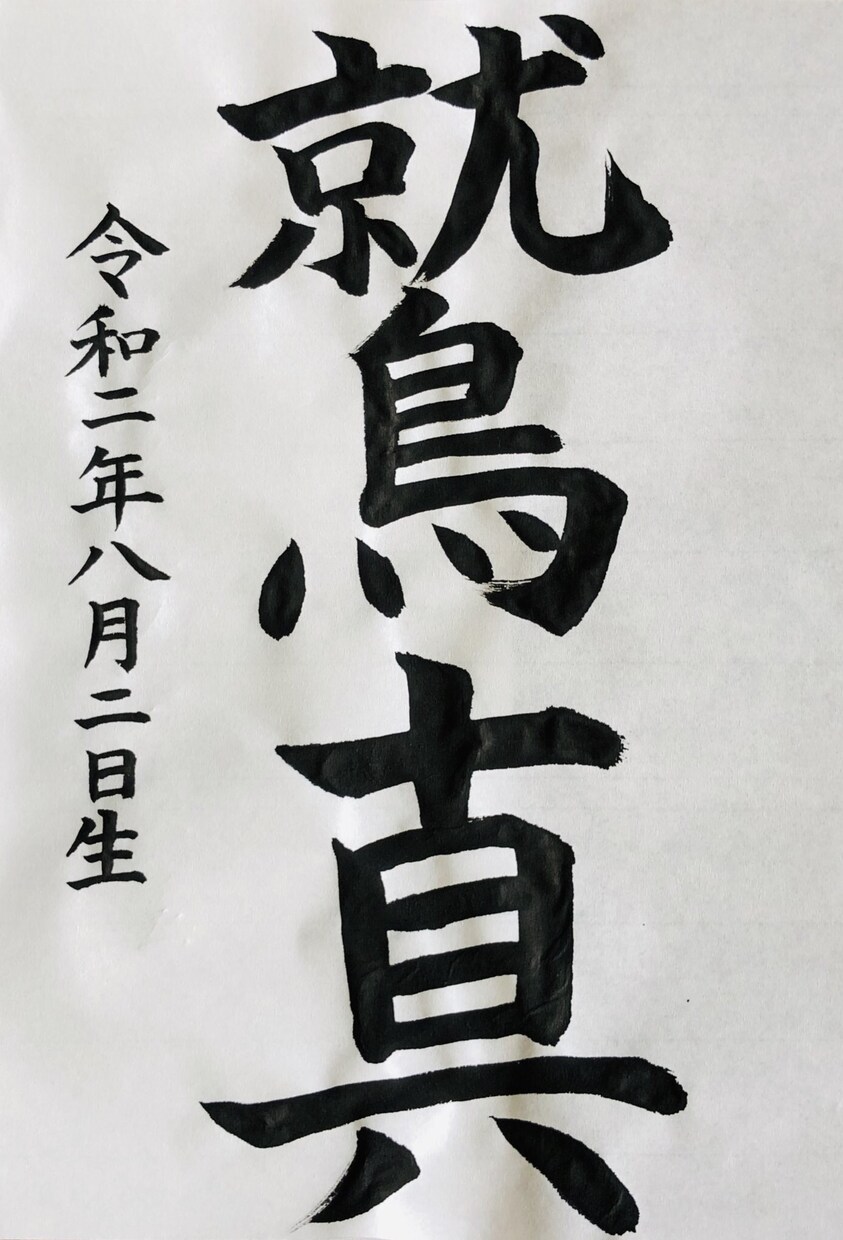 鷲真
令和二年八月二日生